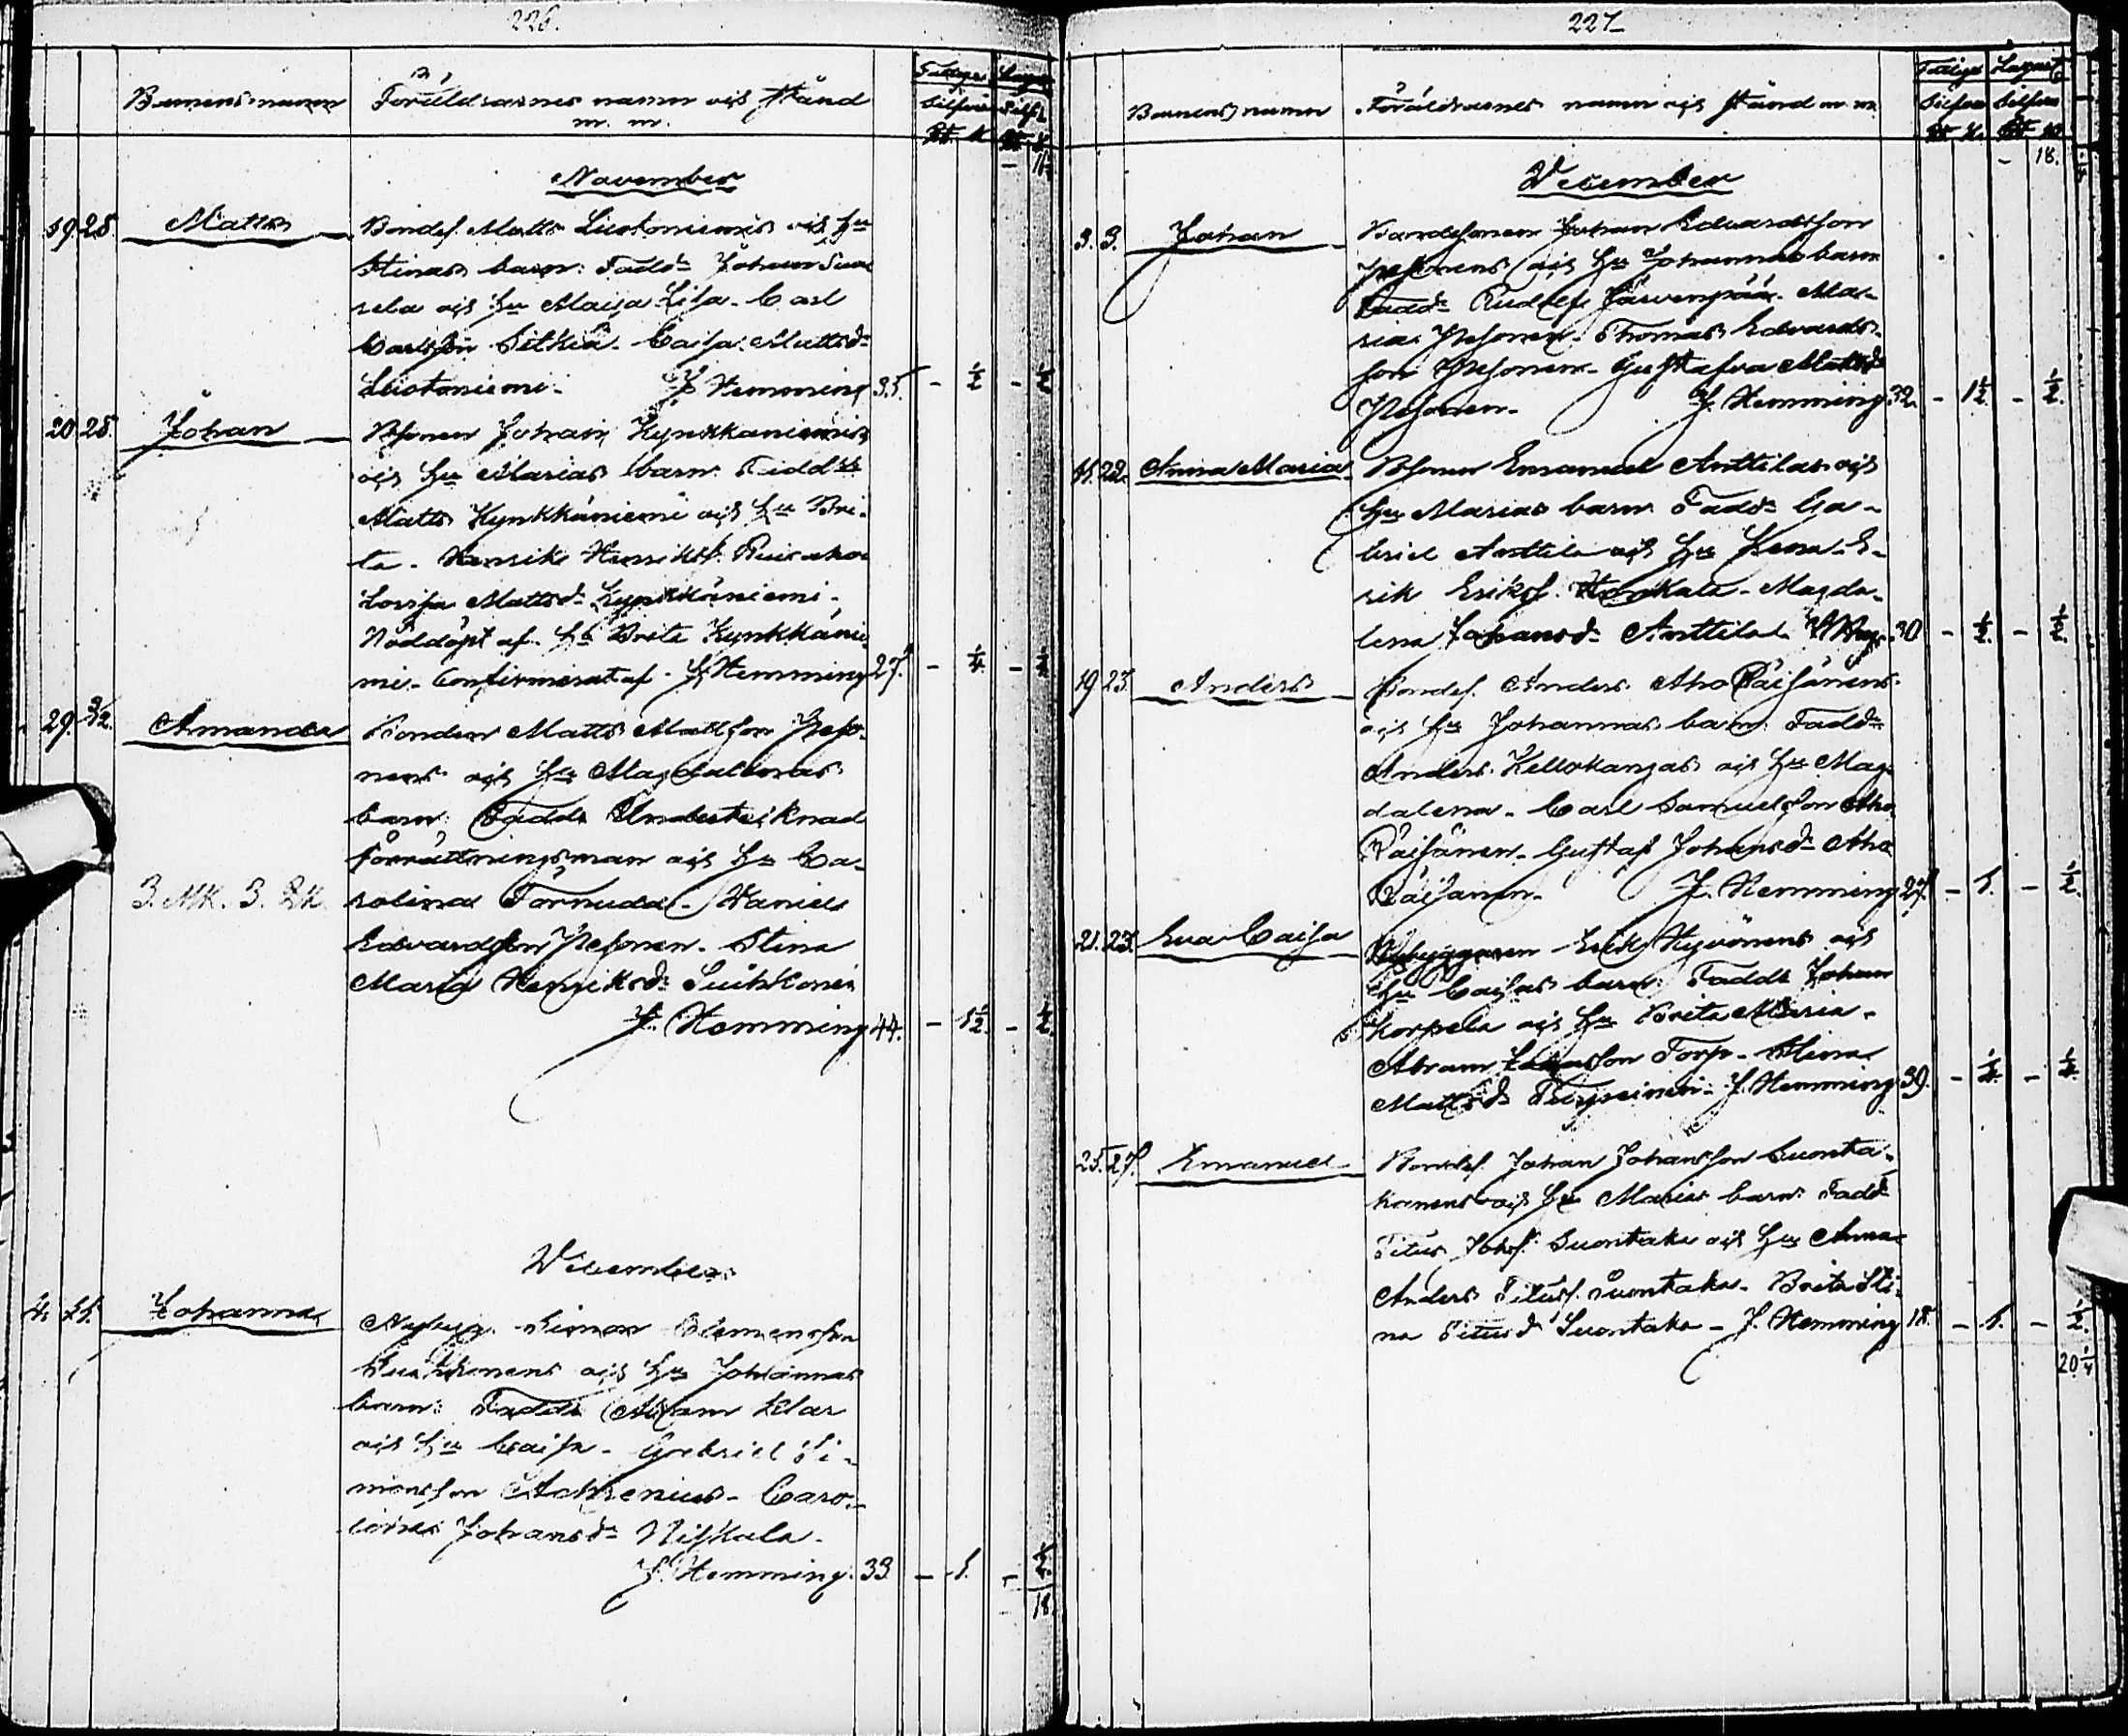 226.
Barnens namn Föräldrarnes namn och stånd
m. m.
Fattige
Silfver
November
19. 28. Matts Bondes. Matts Liestoniemis och Hu
Stinas barn: Fadd: Johan
rela och Hu Maija Lisa. Carl
Carlsson Pitkä. Caisa Mattsd:
Liestoniemi. J Hemming 35. - ½ - ½
20 28. Johan Bsonen Johan Kynkkäniemis
och Hu Marias barn: Fadd:
Matts Kynkkäniemi och Hu Bri-
ta. Henrik Henrikss.
Lovisa Mattsd: Kynkkäniemi.
Nöddöpt af Hu Brita Kynkkänie
mi. Confirmerat af. J Hemming 27. - ¼ - ½
29. 3/12. Amanda Bonden Matts Mattsson Peso-
nens och Hu Magdalenas
barn: Fadd: Undertecknad
Förrättningsman och Hu Ca-
3. Mk. 3. Sk. rolina Tornudd. Daniel
Edvardsson Pesonen. Stina
Maria Henriksd: Suihkonen
J. Hemming 44. - 1½ - ½
December
4. 11. Johanna Nybygg. Simon Clemensson
och Hu Johannas
barn: Fadd: Abram Klar
och Hu Caisa. Gabriel Si-
monsson Achrenius. Caro-
lina Johansd: Niskala.
J. Hemming. 33 - 1. - ½
18.
227
Barnens namn Föräldrarnes namn och stånd m. m.
Fattige Lazaret
Silfver Silfver
- 18.
December
3. 9. Johan Bondesonen Johan Edvardsson
Pesonens och Hu Johannas barn
Fadd: Rudolf Järvenpää. Ma-
ria Pesonen. Thomas Edvards-
son Pesonen. Gustafva Mattsd:
Pesonen. J. Hemming 32. - 1½ - ½.
11. 22. Anna Maria Bsonen Emanuel Anttilas och
Hu Marias barn: Fadd: Ga-
briel Anttila och Hu Lena. E-
rik Eriks. Magda-
lena Johansd: Anttila. 30 - ½. - ½.
19 23. Anders Bondes. Anders Aho Räisänens
och Hu Johannas barn: Fadd:
Anders Kellokangas och Hu Mag-
dalena. Carl Samuelsson Aho
Räisänen. Gustaf Johansd: Aho
Räisänen. J. Hemming 27. - 1. - ½.
21. 23. Eva Caisa Nybyggaren Erik Hyvönens och
Hu Caisas barn: Fadd: Johan
Korpela och Hu Brita Maria.
Abram Torp. Stina
Mattsd: J. Hemming 39. - ½. - ½.
25. 27. Emanuel Bondes. Johan Johansson Suonta-
kanens och Hu Marias barn: Fadd:
Titus Johs. Suontaka och Hu Anna
Anders Tituss. Suontaka. Brita Sti-
na Titusd: Suontaka - J. Hemming 18. - 1. - ½.
20¼